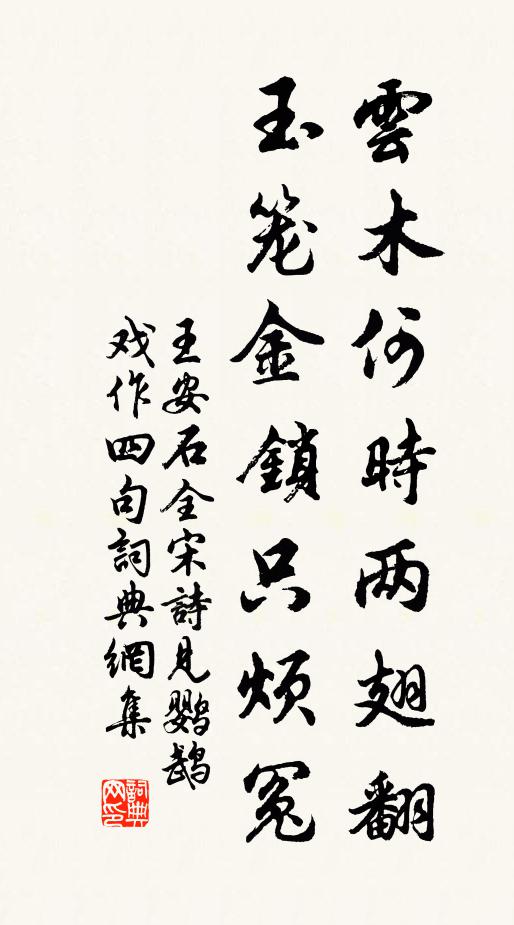 雲木何時两翅翻
玉笼金鎖只煩冤
王安石全宋詩見鹦鹉
戏作四句詞典網集
詞典网印